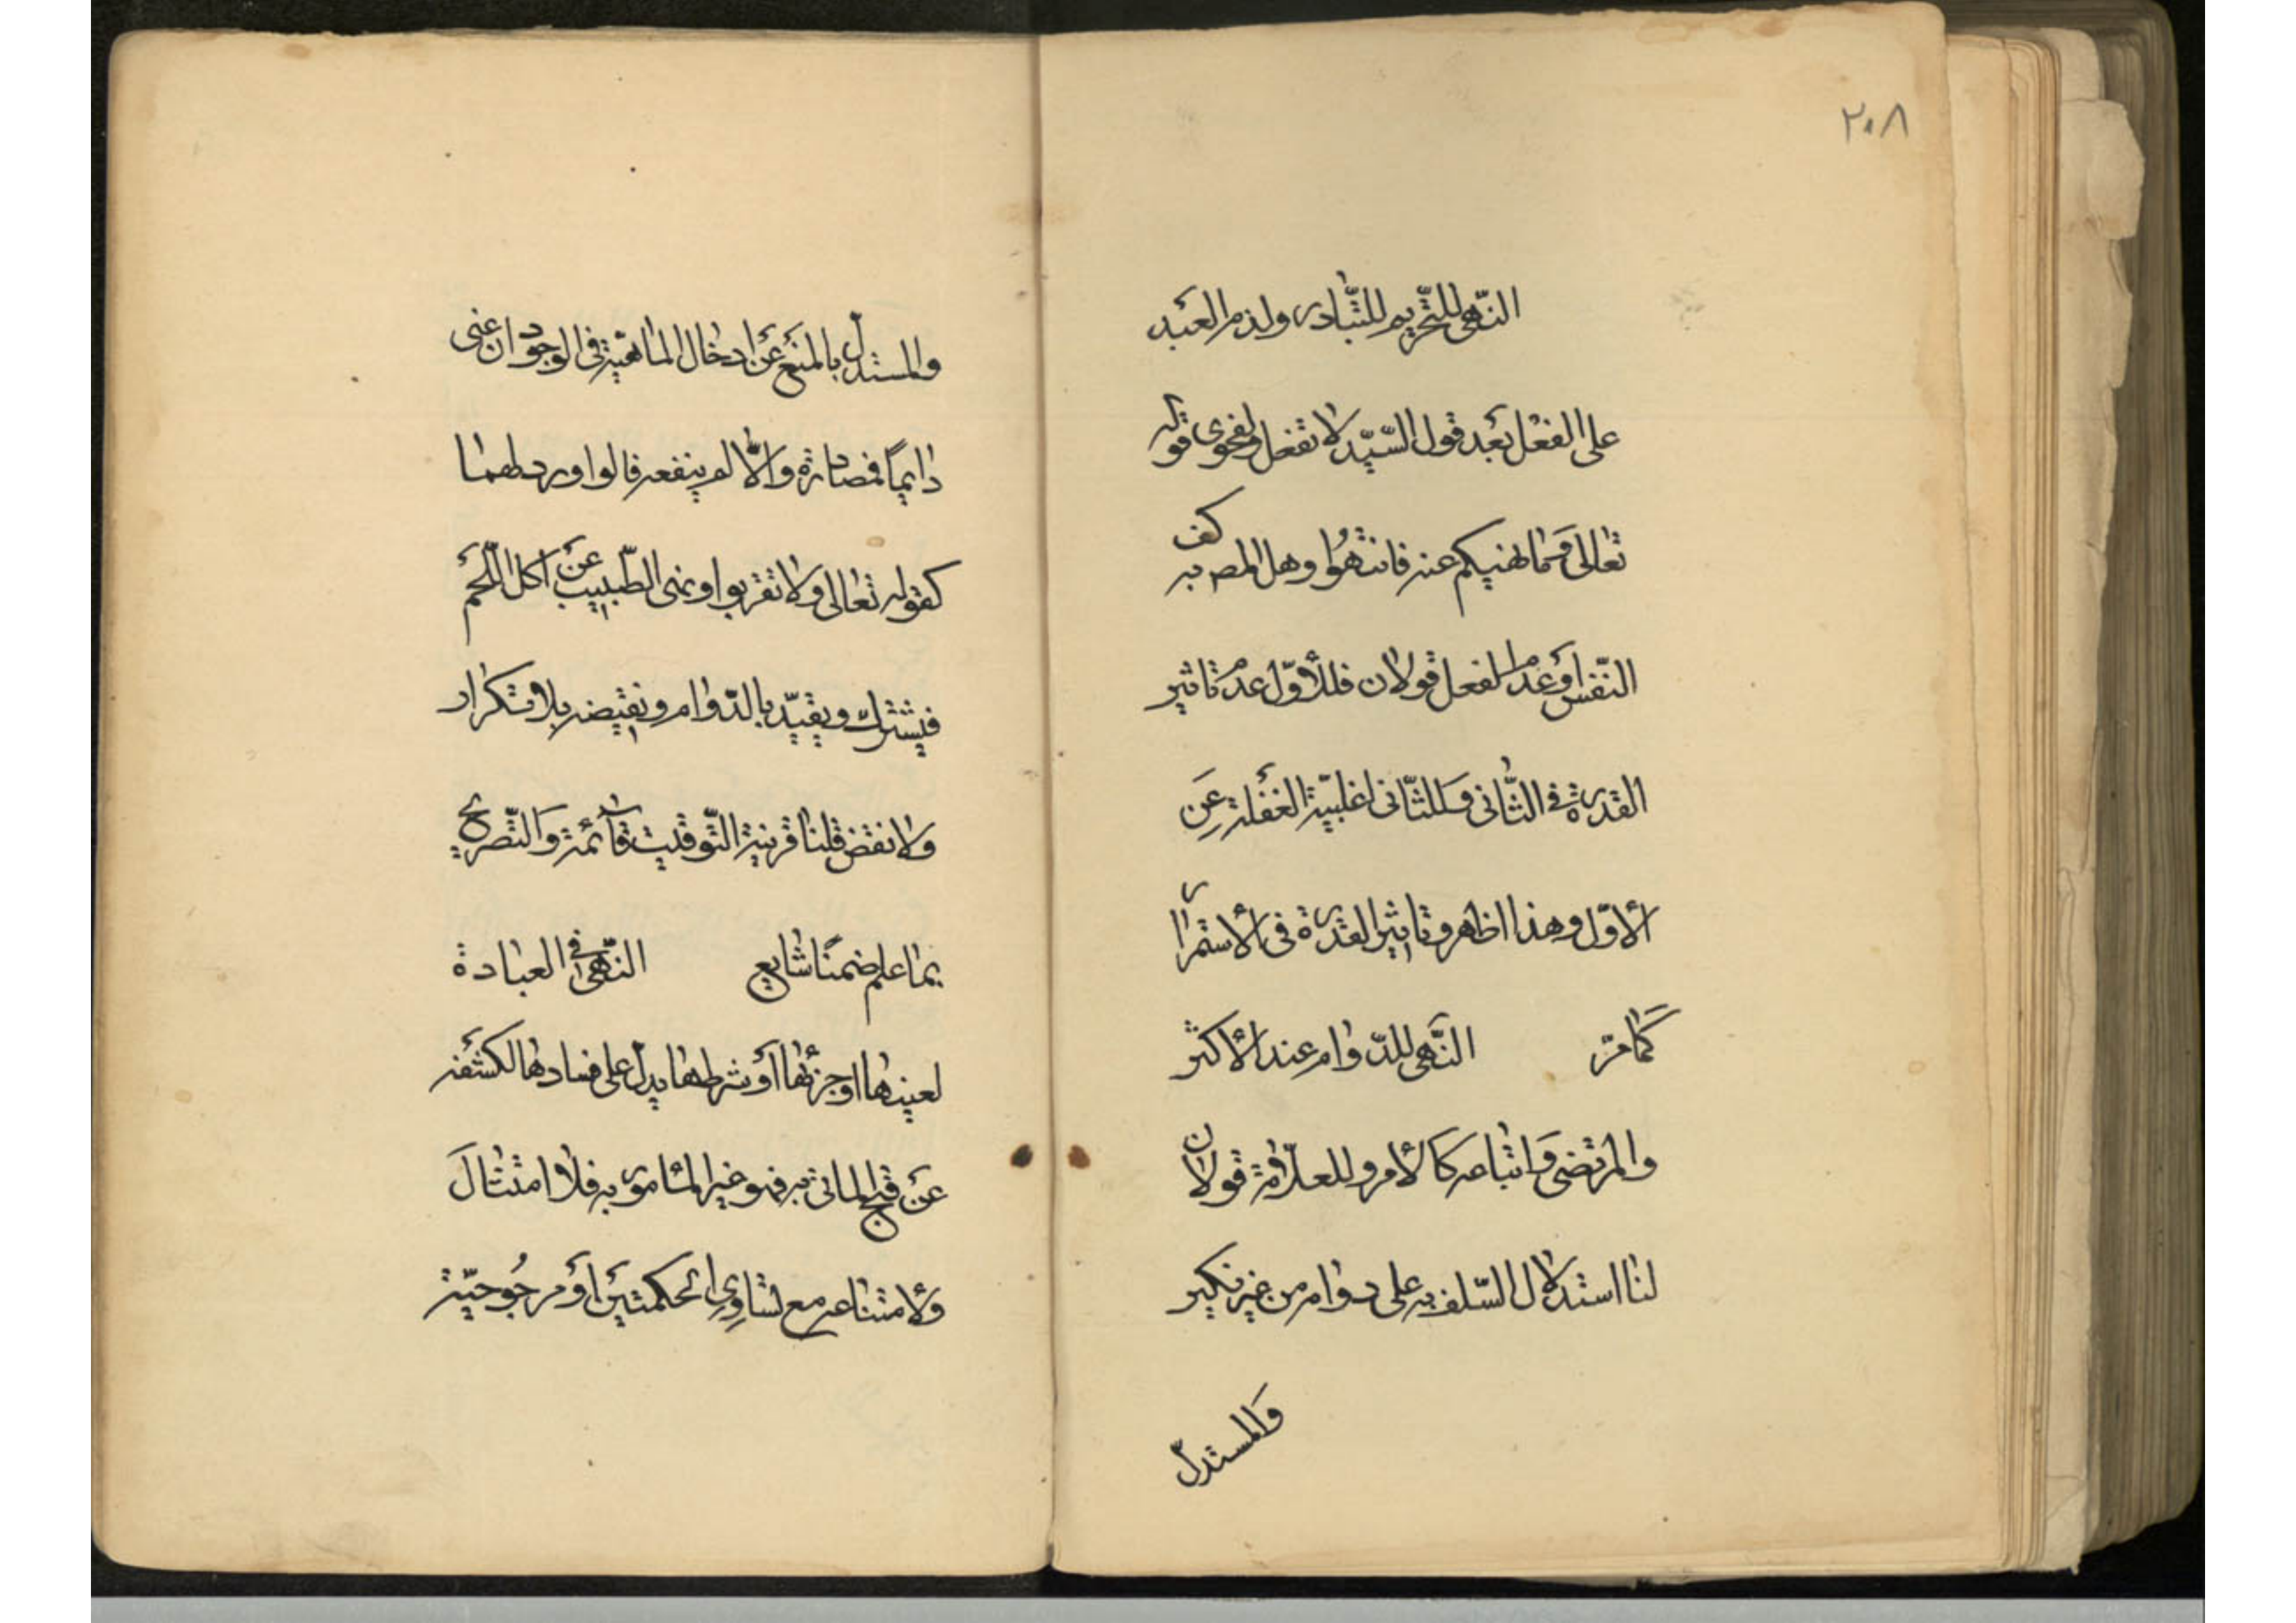 ٢٠٨
النّهى للتّحريم للتّبادر ولذم العبد
على الفعل بعد قول السّيّد لا تفعل ولفحوى قوله
تعالى وما نهيكم عنه فانتهوا وهل المط به كف
النّفس او عدم الفعل قولان فللأوّل عدم تاثير
القدرة فى الثّانى وللثّانى اغلبيّة الغفلة عن
الأوّل وهذا اظهر وتاثير القدرة فى الأستمرار
كما مرّ النّهى للدّوام عند الأكثر
والمرتضى واتباعه كالأمر وللعلّامة قولان
لنا استدلال السّلف به على دوام من غير نكير
والمستدلّ
والمستدلّ بالمنع عن ادخال الماهيّة فى الوجود ان عنى
دايماً فمصادرة والّا لم ينفعه قالوا ورد لهما
كقوله تعالى ولا تقربوا ونهى الطّبيب عن اكل اللّحم
فيشترك ويقيّد بالدّوام ونقيضه بلا تكرار
ولا نقض قلنا قرينة التّوقيت قائمة والتّصريح
بما علم ضمنًا شايع النّهى فى العبادة
لعينها او جزئها او شرطها يدلّ على فسادها لكشفه
عن قبح الماتى به فهو غير المأمور به فلا امتثال
ولأمتناعه مع تساوى الحكمتين او مرجوحيّة